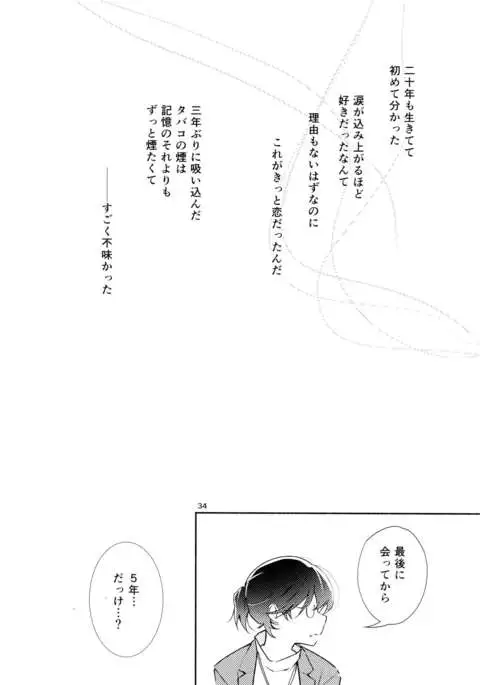 二十年も生きてて
初めて分かった
涙が込み上がるほど
好きだったなんて
理由もないはずなのに
これがきっと恋だったんだ
三年ぶりに吸い込んだ
タバコの煙は
記憶のそれよりも
ずっと煙たくて
――すごく不味かった
34
最後に
会ってから
5年…
だっけ…?